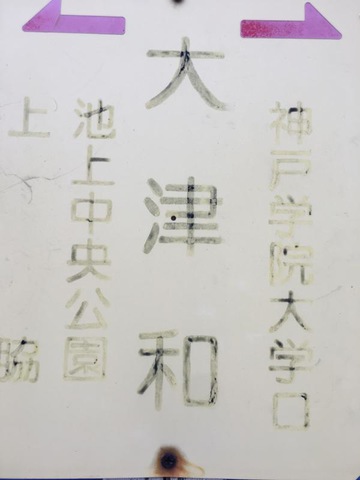 神戸学院大学口
大津和
池上中央公園
上脇